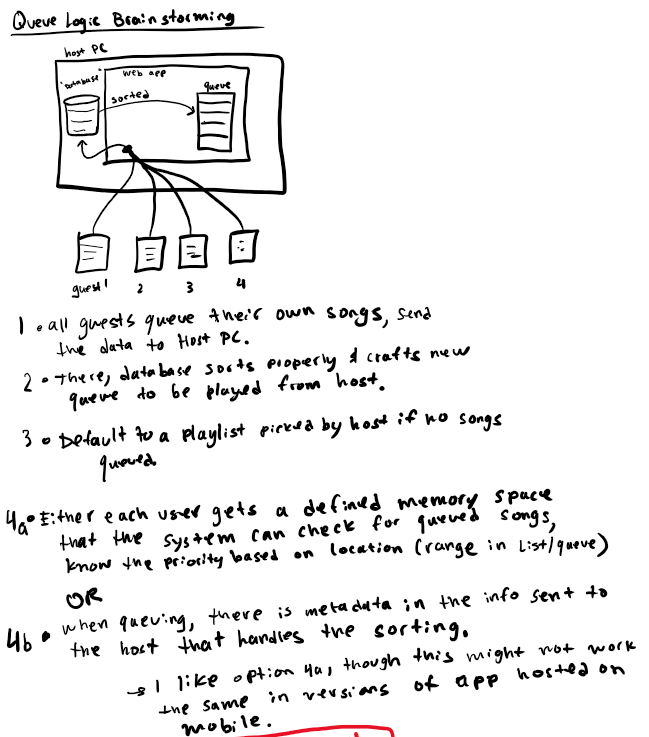 Queue Logic Brainstorming
host PC
"Database"
web app
queue
sorted
guest 1
2
3
4
1 • all guests queue their own songs, send
the data to Host PC.
2 • There, database sorts properly & crafts new
queue to be played from host.
3 • Default to a playlist picked by host if no songs
queued.
4a • Either each user gets a defined memory space
that the system can check for queued songs,
know the priority based on location (range in list/queue)
OR
4b • when queuing, there is metadata in the info sent to
the host that handles the sorting.
→ I like option 4a, though this might not work
the same in versions of app hosted on
mobile.